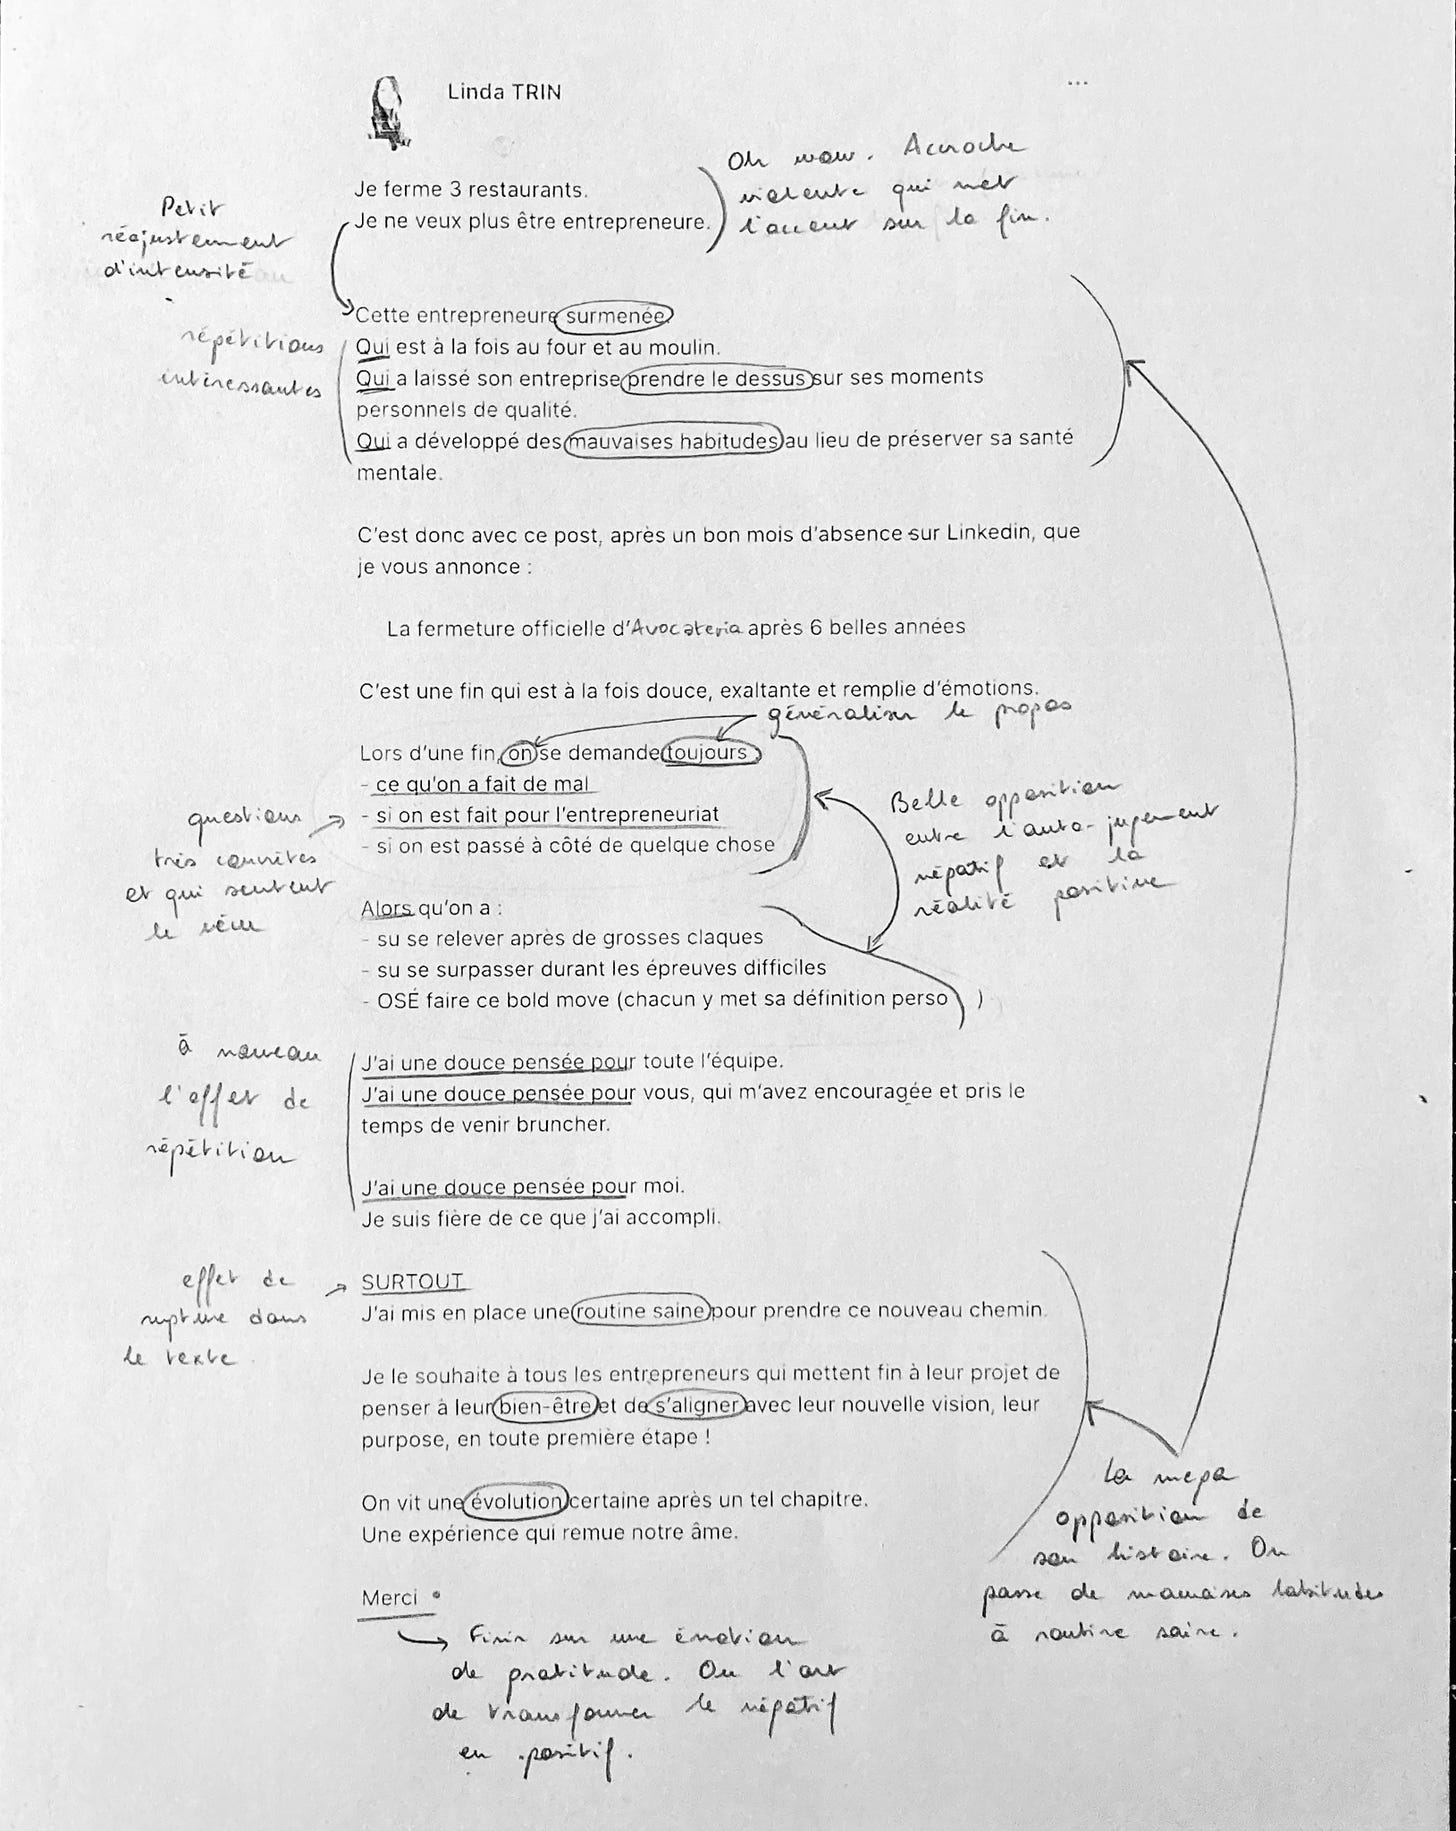 Linda TRIN
...
Oh wow. Accroche
violente qui met
l'accent sur la fin.
Je ferme 3 restaurants.
Je ne veux plus être entrepreneure.
Petit
réajustement
d'intensité
Cette entrepreneure surmenée.
Qui est à la fois au four et au moulin.
Qui a laissé son entreprise prendre le dessus sur ses moments
personnels de qualité.
Qui a développé des mauvaises habitudes au lieu de préserver sa santé
mentale.
répétitions
intéressantes
C'est donc avec ce post, après un bon mois d'absence sur Linkedin, que
je vous annonce :
La fermeture officielle d'Avocateria après 6 belles années
C'est une fin qui est à la fois douce, exaltante et remplie d'émotions.
généraliser le propos
Lors d'une fin, on se demande toujours
- ce qu'on a fait de mal
- si on est fait pour l'entrepreneuriat
- si on est passé à côté de quelque chose
questions
très concrètes
et qui sentent
le vécu
Belle opposition
entre l'auto-jugement
négatif et la
réalité positive
Alors qu'on a :
- su se relever après de grosses claques
- su se surpasser durant les épreuves difficiles
- OSÉ faire ce bold move (chacun y met sa définition perso )
à nouveau
l'effet de
répétition
J'ai une douce pensée pour toute l'équipe.
J'ai une douce pensée pour vous, qui m'avez encouragée et pris le
temps de venir bruncher.
J'ai une douce pensée pour moi.
Je suis fière de ce que j'ai accompli.
effet de
rupture dans
le texte.
SURTOUT
J'ai mis en place une routine saine pour prendre ce nouveau chemin.
Je le souhaite à tous les entrepreneurs qui mettent fin à leur projet de
penser à leur bien-être et de s'aligner avec leur nouvelle vision, leur
purpose, en toute première étape !
On vit une évolution certaine après un tel chapitre.
Une expérience qui remue notre âme.
La mega
opposition de
son histoire. On
passe de mauvaises habitudes
à routine saine.
Merci
Finir sur une émotion
de gratitude. Ou l'art
de transformer le négatif
en positif.